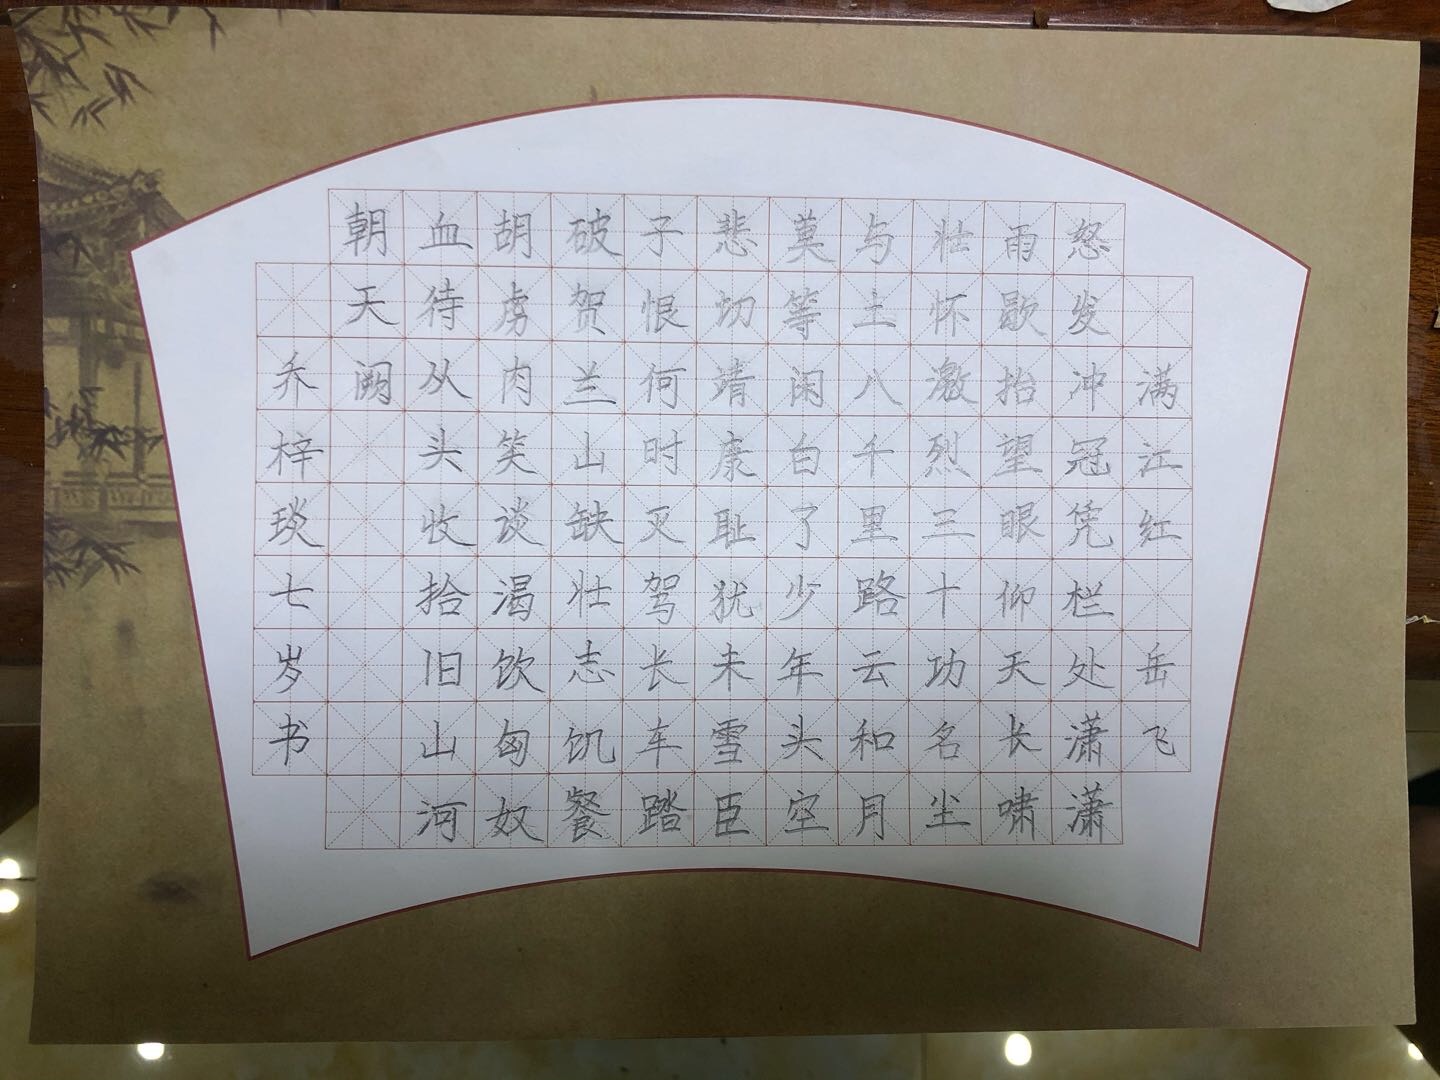 满江红 岳飞
怒发冲冠凭栏处潇潇
雨歇抬望眼仰天长啸
壮怀激烈三十功名尘
与土八千里路云和月
莫等闲白了少年头空
悲切靖康耻犹未雪臣
子恨何时灭驾长车踏
破贺兰山缺壮志饥餐
胡虏肉笑谈渴饮匈奴
血待从头收拾旧山河
朝天阙
乔梓琰七岁书